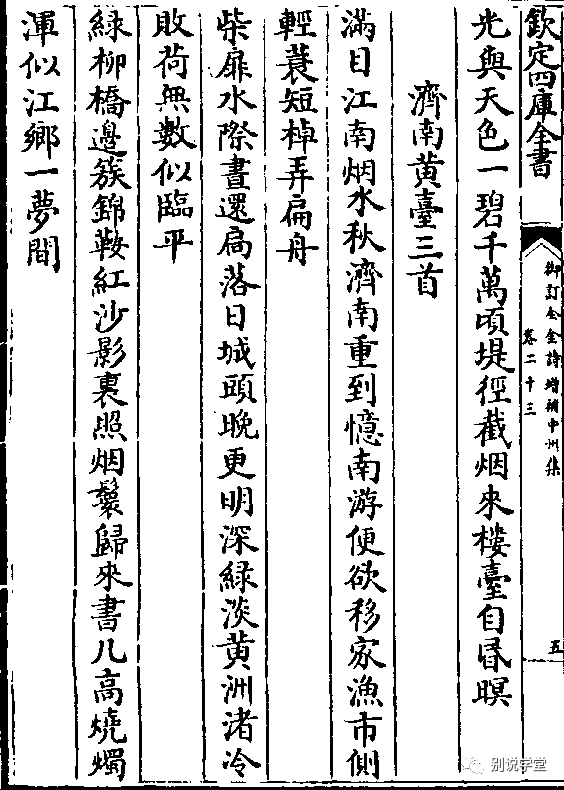 欽定四庫全書
御訂全金詩增補中州集
卷二十三
五
光與天色一碧千萬頃堤徑截烟來樓臺自昏暝
濟南黄臺三首
滿目江南烟水秋濟南重到憶南游便欲移家漁市側
輕蓑短棹弄扁舟
柴扉水際晝還扃落日城頭晚更明深綠淡黄洲渚冷
敗荷無數似臨平
綠柳橋邊簇錦鞍紅沙影裏照烟鬟歸來書几高燒燭
渾似江鄉一夢間
别说学堂